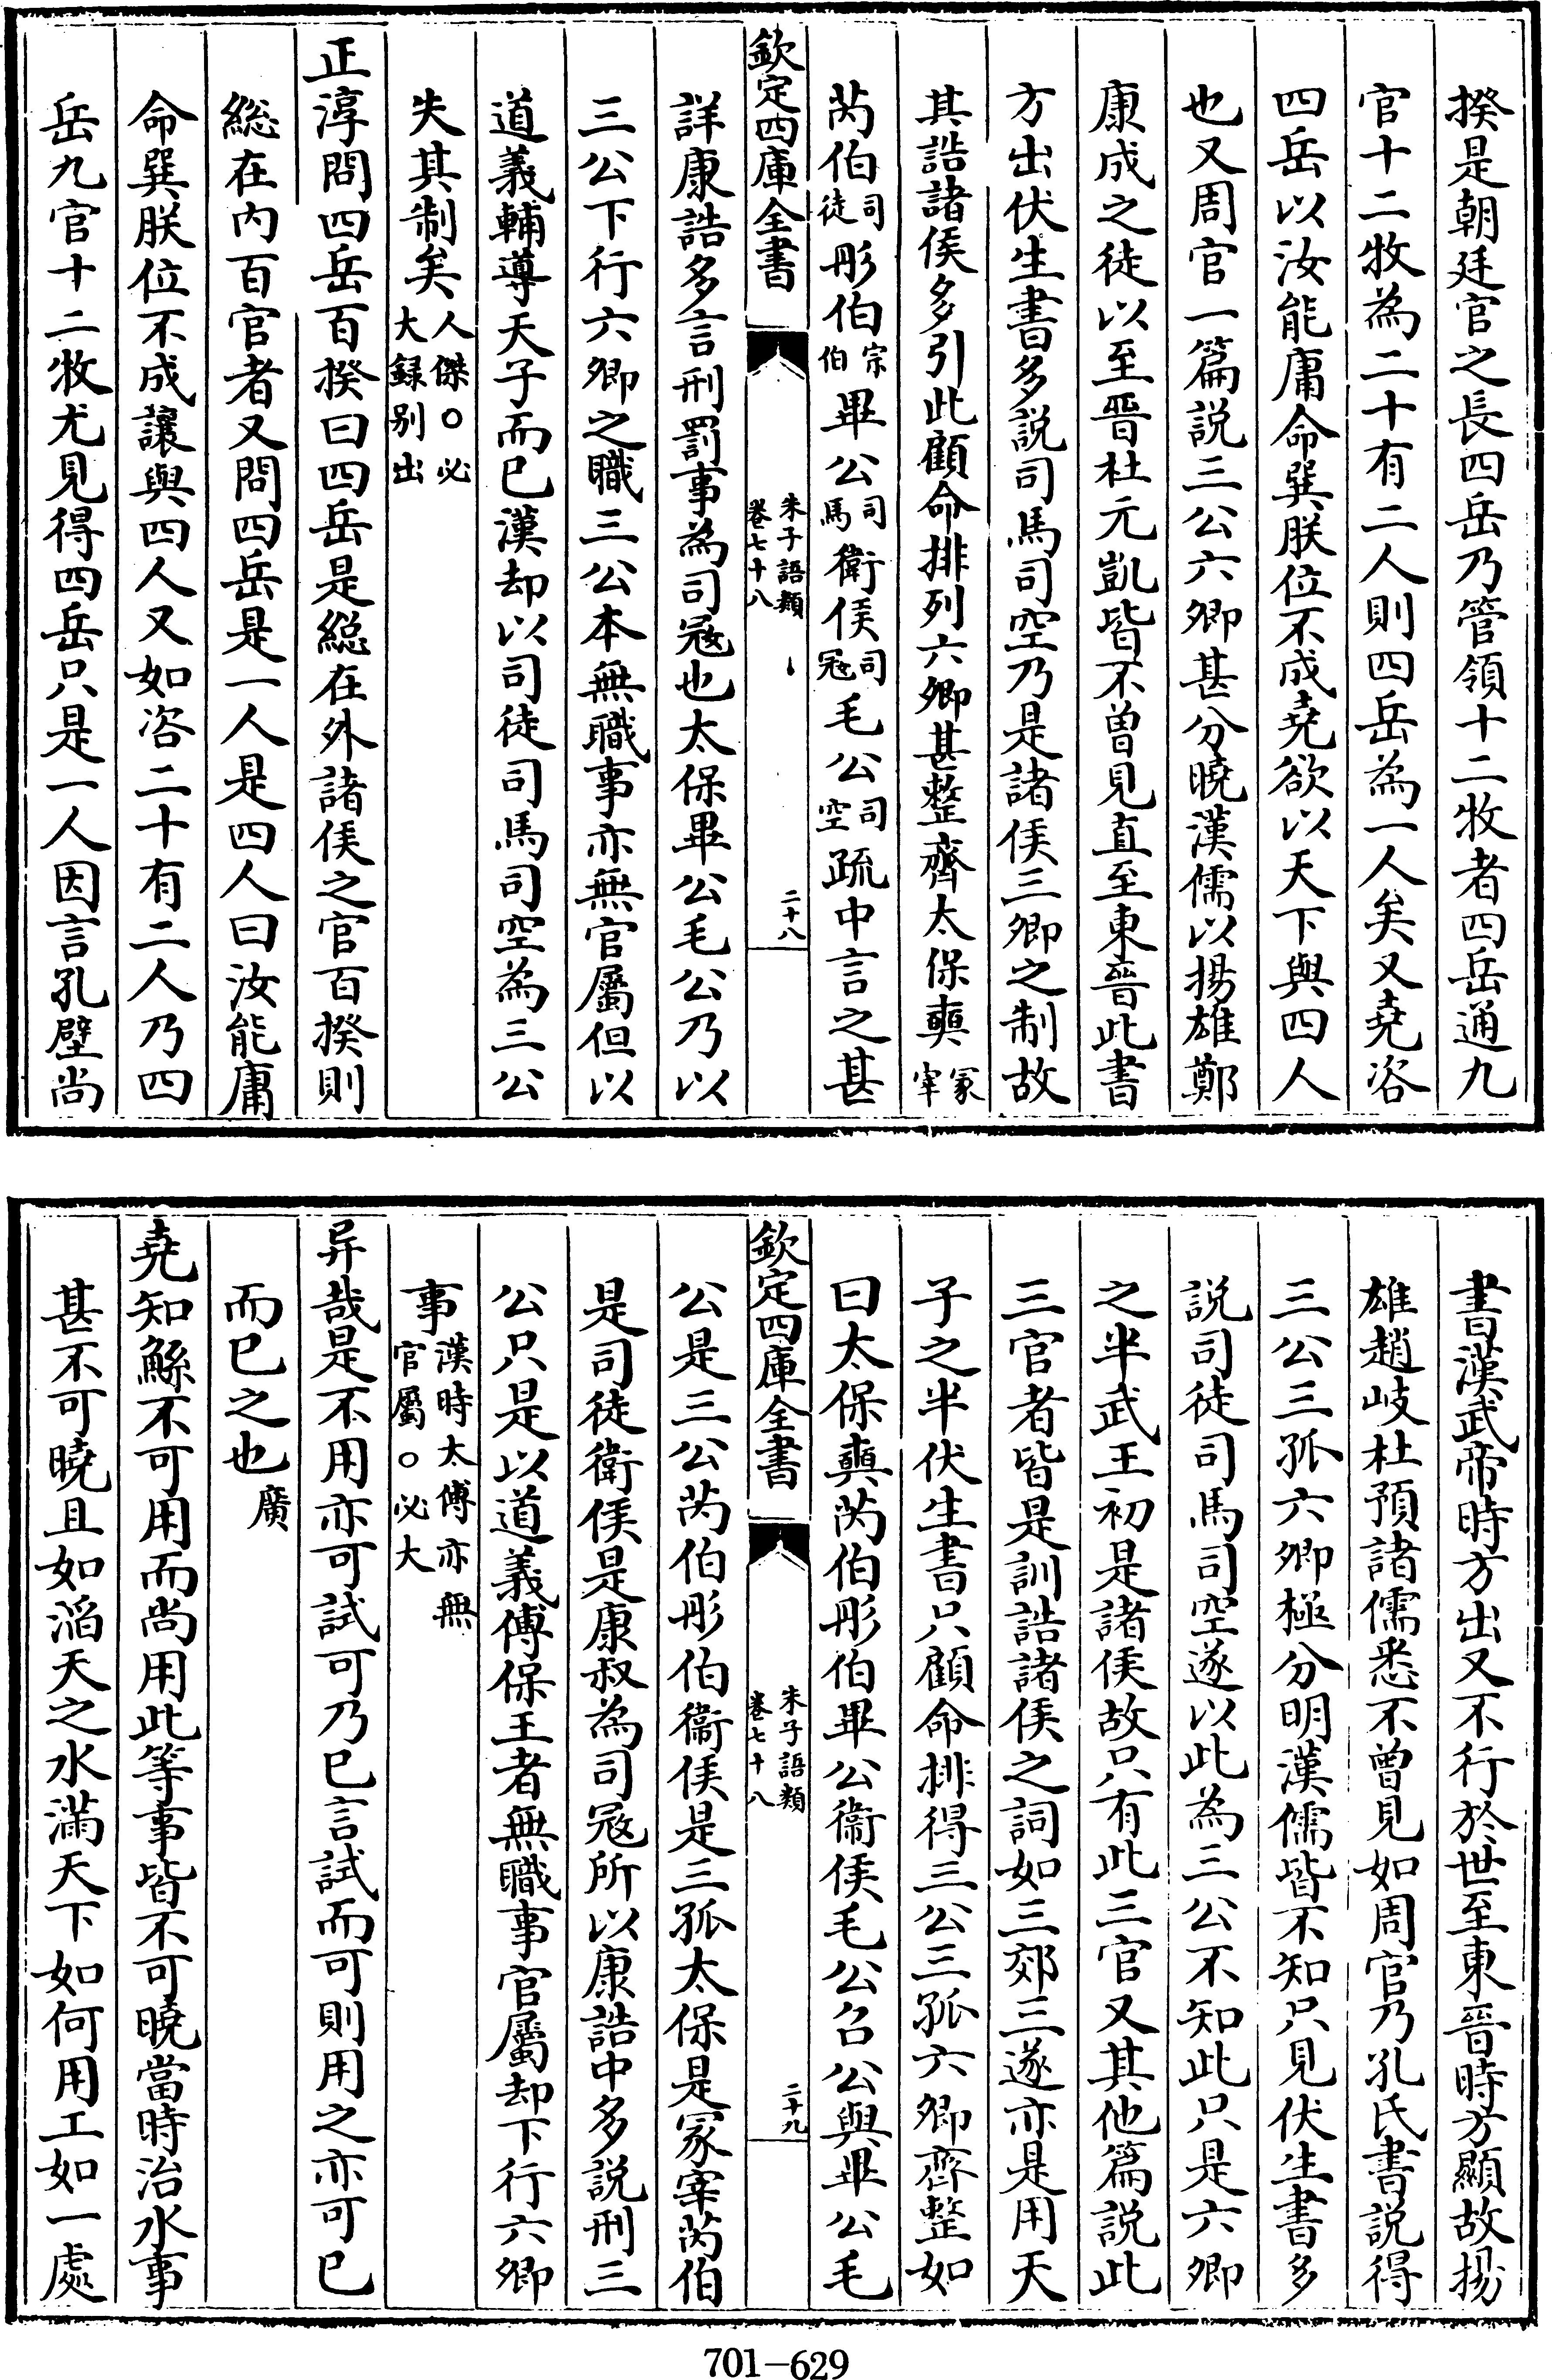 揆是朝廷官之長四岳乃管領十二牧者四岳通九
官十二牧為二十有二人則四岳為一人矣又堯咨
四岳以汝能庸命巽朕位不成堯欲以天下與四人
也又周官一篇説三公六卿甚分曉漢儒以揚雄鄭
康成之徒以至晉杜元凱皆不曽見直至東晉此書
方出伏生書多説司馬司空乃是諸侯三卿之制故
其誥諸侯多引此顧命排列六卿甚整齊太保奭冡宰
芮伯司徒彤伯宗伯畢公司馬衛侯司冦毛公司空疏中言之甚
欽定四庫全書
朱子語類
卷七十八
二十八
詳康誥多言刑罰事為司冦也太保畢公毛公乃以
三公下行六卿之職三公本無職事亦無官屬但以
道義輔導天子而已漢却以司徒司馬司空為三公
失其制矣人傑○必大録别出
正淳問四岳百揆曰四岳是縂在外諸侯之官百揆則
縂在内百官者又問四岳是一人是四人曰汝能庸
命巽朕位不成讓與四人又如咨二十有二人乃四
岳九官十二牧尤見得四岳只是一人因言孔壁尚
書漢武帝時方出又不行於世至東晉時方顯故揚
雄趙岐杜預諸儒悉不曾見如周官乃孔氏書説得
三公三孤六卿極分明漢儒皆不知只見伏生書多
説司徒司馬司空遂以此為三公不知此只是六卿
之半武王初是諸侯故只有此三官又其他篇説此
三官者皆是訓誥諸侯之詞如三郊三遂亦是用天
子之半伏生書只顧命排得三公三孤六卿齊整如
曰太保奭芮伯彤伯畢公衞侯毛公召公與畢公毛
欽定四庫全書
朱子語類
卷七十八
二十九
公是三公芮伯彤伯衞侯是三孤太保是冡宰芮伯
是司徒衛侯是康叔為司冦所以康誥中多説刑三
公只是以道義傅保王者無職事官屬却下行六卿
事漢時太傅亦無官屬○必大
异哉是不用亦可試可乃已言試而可則用之亦可已
而已之也廣
堯知鯀不可用而尚用此等事皆不可曉當時治水事
甚不可曉且如滔天之水滿天下如何用工如一處
701-629